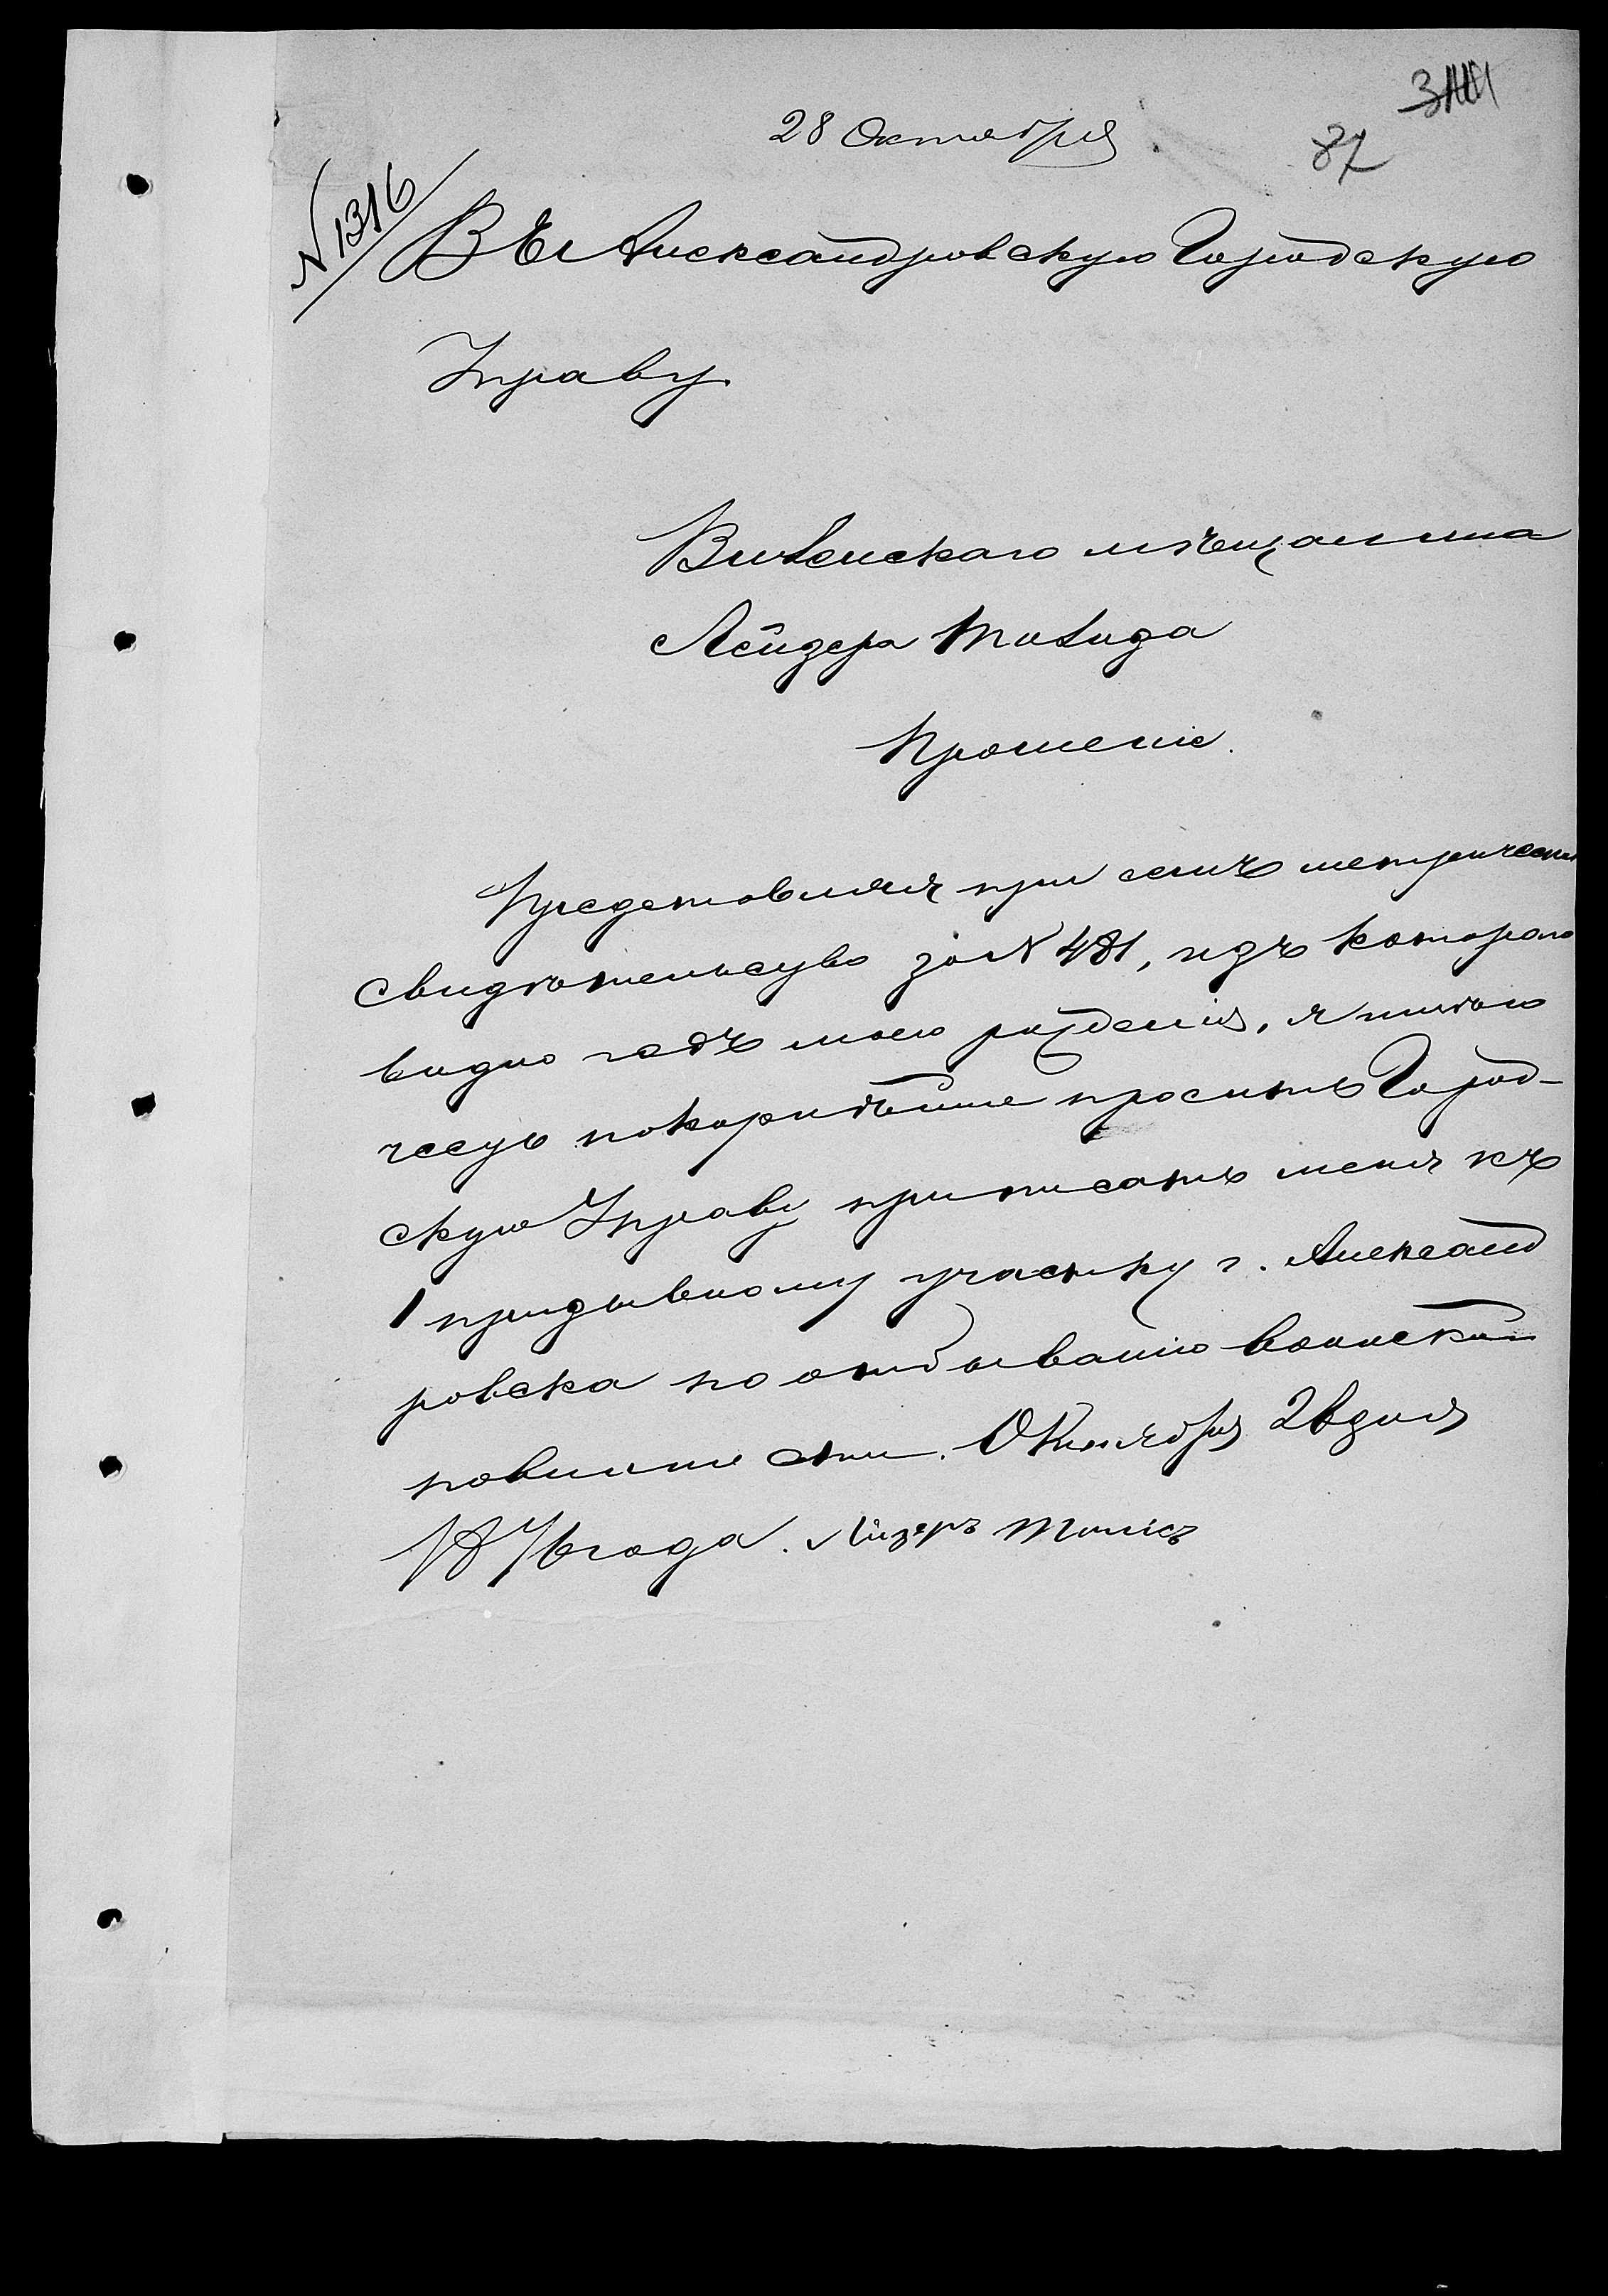 28 Октября
87
№ 1316
Въ Александровскую Городскую
Управу
Виленскаго мѣщанина
Лейзера
Прошеніе.
Представляя при семъ метрическ
свидѣтельсуво за № 481, изъ котораго
видно годъ моего рожденія, я имѣю
чесуь покорнѣйше просить Город-
скую Управу приписать меня къ
1 призывному участку г. Александ
ровска по отбыванію воинской
повинности. Октября 28 дня
года. Лизеръ